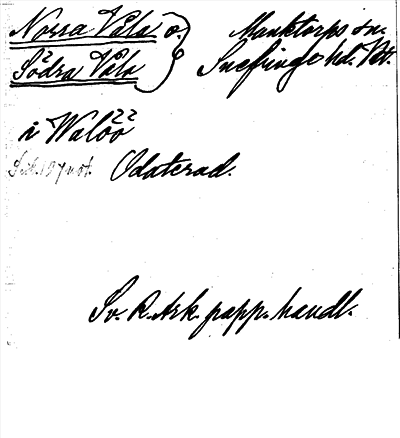 Norra Våla o.
Södra Våla
Munktorps sn.
Snefringe hd. Vstm.
i Waloo
Odaterad.
Sv. R. Ark. papp. handl.